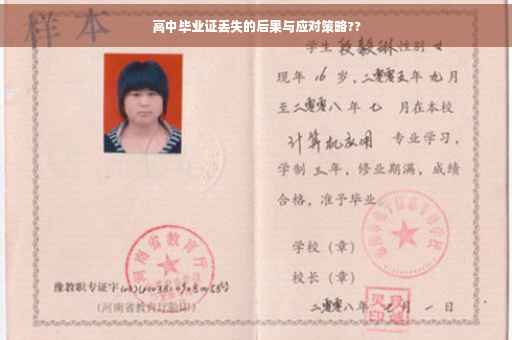 高中毕业证丢失的后果与应对策略??
样本
河南省教育厅
豫教职专证字
(河南省教育厅验印)
学生 段毅琳 性别 女
现年 16 岁，二零零五年 九 月
至二零零八年 七 月在本校
计算机应用 专业学习，
学制 三 年，修业期满，成绩
合格，准予毕业。
学校（章）
校长（章）
二零零八年 七 月 一 日